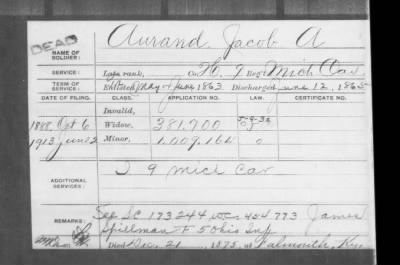 DEAD
NAME OF SOLDIER: Aurand, Jacob A
SERVICE: Late rank, Co. H, 9 Reg't Mich Cav.
TERM OF SERVICE: Enlisted May & June 1863 Discharged June 12, 1865
DATE OF FILING. CLASS. APPLICATION NO. LAW. CERTIFICATE NO.
Invalid,
1888, Oct 6 Widow, 381,700
1913 June 2 Minor, 1,009,164 0
ADDITIONAL SERVICES: 9 Mich Cav
REMARKS: See SC 173244 WC 454 773 James
Spillman F 5 Ohio Inf
Died Dec 21, 1875, at Falmouth, Ky.